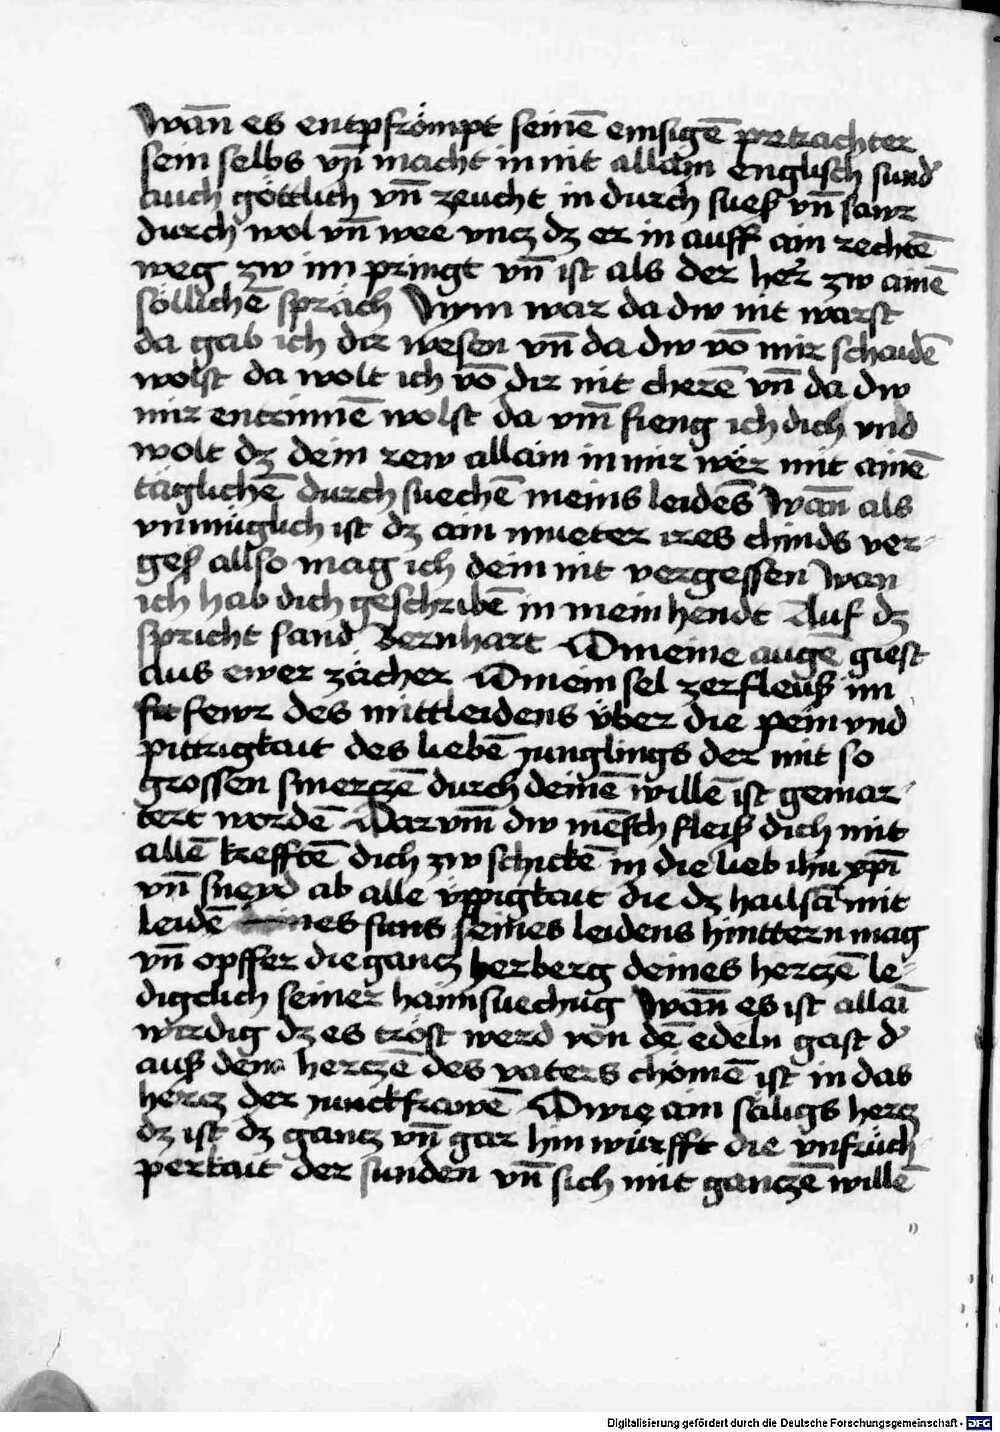 Wān es entpfrömpt seinē emsigē petrachter
sein selbs vn̄ macht in nit allain englisch sund'
auch göttlich vn̄ zeucht in durch sueß vn̄ sawr
durch wol vn̄ wee vncz dz er in auff ain rechtē
weg zw im pringt vn̄ ist als der her zw ainē
söllichē spräch Nym war da dw nit warst
da gab ich dir wesen vn̄ da dw vō mir schaidē
wolst da wolt ich vō dir nit cherē vn̄ da dw
mir entrinnē wolst da vm̄ fieng ich dich vnd
wolt dz dein rew allain in mir wër mit ainē
täglichē durch suechē meins leidēs Wān als
vnmüglich ist dz ain mueter ires chinds ver-
geß allso mag ich dein nit vergessen Wan
ich hab dich geschribē in mein hendt Auf dz
spricht sand Bernhart O meine augē giest
aus ewer zächer O mein sel zerfleuß im
fewr des mittleidens über die pein vnd
pittrigkait des liebē junglings der mit so
grossen smerczē durch deinē willē ist gemar-
tert wordē Darvm̄ dw mēsch fleiß dich mit
allē krefftē dich zw schickē in die lieb ihū xpī
vn̄ sneyd ab alle üppigkait die dz hailsā mit
leidē nes suns seines leidens hinttern mag
vn̄ opffer die gancz herberg deines herczē le-
digclich seiner haimsuechūg Wān es ist allaī
wirdig dz es tröst werd von dē edeln gast d'
auß dem herczē des vaters chömē ist in das
hercz der junckfrawē O wie ain säligs hercz
dz ist dz gancz vn̄ gar hin würfft die vnfrüch-
perkait der sunden vn̄ sich mit ganczē willē
Digitalisierung gefördert durch die Deutsche Forschungsgemeinschaft - DFG